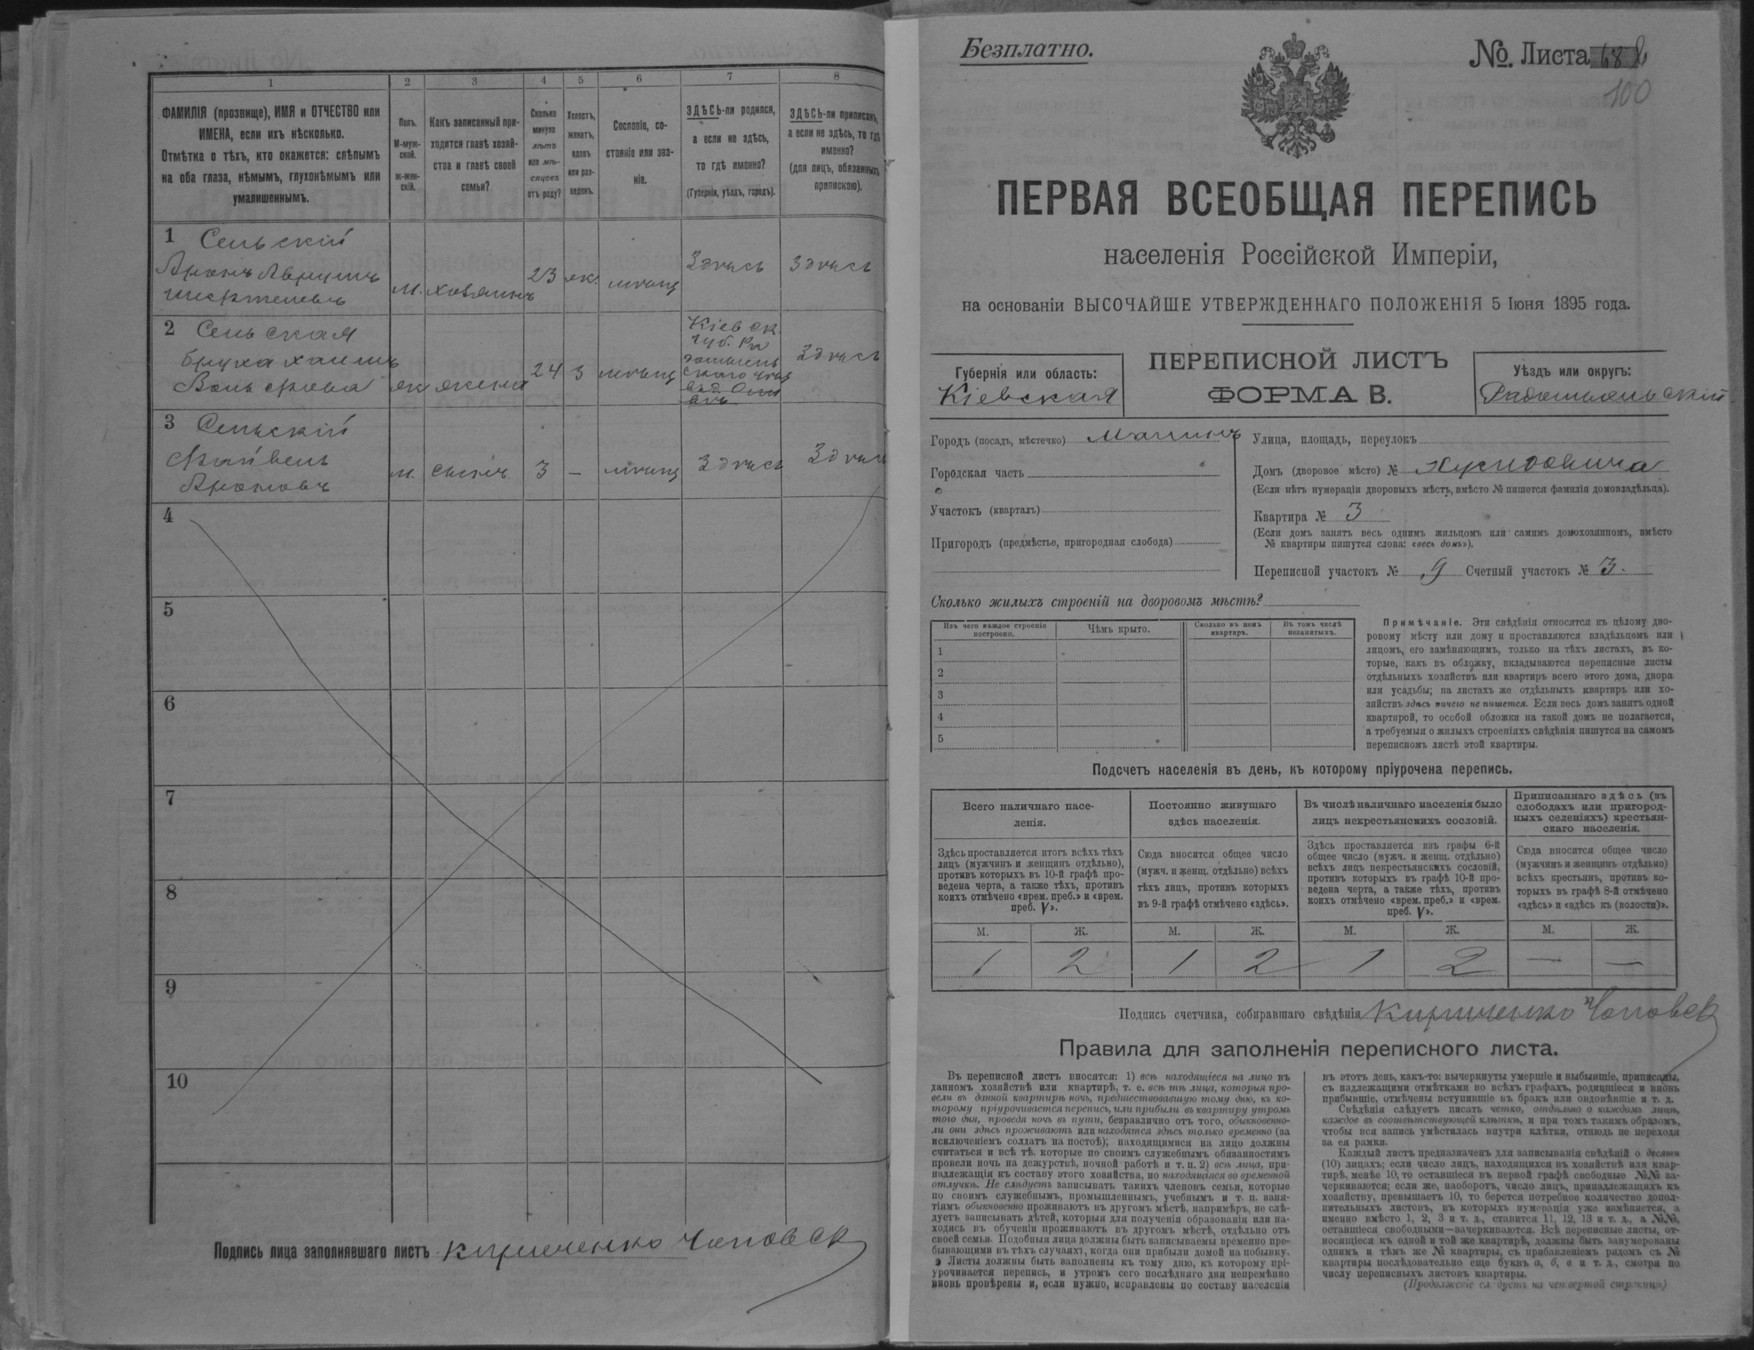 1 2 3 4 5 6 7 8
ФАМИЛІЯ (прозвище), ИМЯ и ОТЧЕСТВО или
ИМЕНА, если ихъ нѣсколько.
Отмѣтка о тѣхъ, кто окажется: слѣпымъ
на оба глаза, нѣмымъ, глухонѣмымъ или
умалишеннымъ.
Полъ.
М-муж-
ской.
ж-жен-
скій.
Какъ записанный при-
ходится главѣ хозяй-
ства и главѣ своей
семьи?
Сколько
минуло
лѣтъ
или мѣ-
сяцевъ
отъ роду?
Холостъ,
женатъ,
вдовъ
или раз-
веденъ.
Сословіе, со-
стояніе или зва-
ніе.
ЗДѢСЬ-ли родился,
а если не здѣсь,
то гдѣ именно?
(Губернія, уѣздъ, городъ).
ЗДѢСЬ-ли приписанъ,
а если не здѣсь, то гдѣ
именно?
(для лицъ, обязанныхъ
припискою).
1 Сельскій
Аронъ
м. хозяинъ 23 мѣщ Здѣсь Здѣсь
2 Сельская
Бруха
жена 24 мѣщ Кіевск. губ. Здѣсь
3 Сельскій
Ароновъ
м. сынъ 3 — мѣщ Здѣсь Здѣсь
4
5
6
7
8
9
10
Подпись лица заполнявшаго листъ Кириченко
Безплатно.
№. Листа 68
100
ПЕРВАЯ ВСЕОБЩАЯ ПЕРЕПИСЬ
населенія Россійской Имперіи,
на основаніи ВЫСОЧАЙШЕ УТВЕРЖДЕННАГО ПОЛОЖЕНІЯ 5 Іюня 1895 года.
ПЕРЕПИСНОЙ ЛИСТЪ
ФОРМА В.
Губернія или область:
Кіевская
Уѣздъ или округъ:
Радомысльскій
Городъ (посадъ, мѣстечко) Малинъ
Городская часть
Участокъ (кварталъ)
Пригородъ (предмѣстье, пригородная слобода)
Улица, площадь, переулокъ
Домъ (дворовое мѣсто) №
(Если нѣтъ нумераціи дворовыхъ мѣстъ, вмѣсто № пишется фамилія домовладѣльца).
Квартира № 3
(Если домъ занятъ весь однимъ жильцомъ или самимъ домохозяиномъ, вмѣсто
№ квартиры пишутся слова: «весь домъ»).
Переписной участокъ № 9 Счетный участокъ № 3.
Сколько жилыхъ строеній на дворовомъ мѣстѣ?
Изъ чего каждое строеніе
построено.
Чѣмъ крыто.
Сколько въ немъ
квартиръ.
Въ томъ числѣ
незанятыхъ.
1
2
3
4
5
Примѣчаніе. Эти свѣдѣнія относятся къ цѣлому дво-
ровому мѣсту или дому и проставляются владѣльцемъ или
лицомъ, его замѣняющимъ, только на тѣхъ листахъ, въ ко-
торые, какъ въ обложку, вкладываются переписные листы
отдѣльныхъ хозяйствъ или квартиръ всего этого дома, двора
или усадьбы; на листахъ же отдѣльныхъ квартиръ или хо-
зяйствъ здѣсь ничего не пишется. Если весь домъ занятъ одной
квартирой, то особой обложки на такой домъ не полагается,
а требуемыя о жилыхъ строеніяхъ свѣдѣнія пишутся на самомъ
переписномъ листѣ этой квартиры.
Подсчетъ населенія въ день, къ которому пріурочена перепись.
Всего наличнаго насе-
ленія.
Постоянно живущаго
здѣсь населенія.
Въ числѣ наличнаго населенія было
лицъ некрестьянскихъ сословій.
Приписаннаго здѣсь (въ
слободахъ или пригород-
ныхъ селеніяхъ) крестьян-
скаго населенія.
Здѣсь проставляется итогъ всѣхъ тѣхъ
лицъ (мужчинъ и женщинъ отдѣльно),
противъ которыхъ въ 10-й графѣ про-
ведена черта, а также тѣхъ, противъ
коихъ отмѣчено «врем. преб.» и «врем.
преб. V».
Сюда вносится общее число
(мужч. и женщ. отдѣльно) всѣхъ
тѣхъ лицъ, противъ которыхъ
въ 9-й графѣ отмѣчено «здѣсь».
Здѣсь проставляется изъ графы 6-й
общее число (мужч. и женщ. отдѣльно)
всѣхъ лицъ некрестьянскихъ сословій,
противъ которыхъ въ графѣ 10-й про-
ведена черта, а также тѣхъ, противъ
коихъ отмѣчено «врем. преб.» и «врем.
преб. V».
Сюда вносится общее число
(мужчинъ и женщинъ отдѣльно)
всѣхъ крестьянъ, противъ ко-
торыхъ въ графѣ 8-й отмѣчено
«здѣсь» и «здѣсь къ (волости)».
М. Ж. М. Ж. М. Ж. М. Ж.
1 2 1 2 1 2 — —
Подпись счетчика, собиравшаго свѣдѣнія Кириченко
Правила для заполненія переписного листа.
Въ переписной листъ вносятся: 1) всѣ находящіеся на лицо въ
данномъ хозяйствѣ или квартирѣ, т. е. всѣ тѣ лица, которыя про-
вели въ данной квартирѣ ночь, предшествовавшую тому дню, къ ко-
торому пріурочивается перепись, или прибыли въ квартиру утромъ
того дня, проведя ночь въ пути, безразлично отъ того, обыкновенно-
ли они здѣсь проживаютъ или находятся здѣсь только временно (за
исключеніемъ солдатъ на постоѣ); находящимися на лицо должны
считаться и всѣ тѣ, которые по своимъ служебнымъ обязанностямъ
провели ночь на дежурствѣ, ночной работѣ и т. п. 2) всѣ лица, при-
надлежащія къ составу этого хозяйства, но находящіяся во временной
отлучкѣ. Не слѣдуетъ записывать такихъ членовъ семьи, которые
по своимъ служебнымъ, промышленнымъ, учебнымъ и т. п. заня-
тіямъ обыкновенно проживаютъ въ другомъ мѣстѣ, напримѣръ, не слѣ-
дуетъ записывать дѣтей, которыя для полученія образованія или на-
ходясь въ обученіи проживаютъ въ другомъ мѣстѣ, отдѣльно отъ
своей семьи. Подобныя лица должны быть записываемы временно пре-
бывающими въ тѣхъ случаяхъ, когда они прибыли домой на побывку.
Листы должны быть заполнены къ тому дню, къ которому прі-
урочивается перепись, и утромъ сего послѣдняго дня непремѣнно
вновь провѣрены и, если нужно, исправлены по составу населенія
въ этотъ день, какъ-то: вычеркнуты умершіе и выбывшіе, приписаны,
съ надлежащими отмѣтками во всѣхъ графахъ, родившіеся и вновь
прибывшіе, отмѣчены вступившіе въ бракъ или овдовѣвшіе и т. д.
Свѣдѣнія слѣдуетъ писать четко, отдѣльно о каждомъ лицѣ,
каждое въ соотвѣтствующей клѣткѣ, и при томъ такимъ образомъ,
чтобы вся запись умѣстилась внутри клѣтки, отнюдь не переходя
за ея рамки.
Каждый листъ предназначенъ для записыванія свѣдѣній о десяти
(10) лицахъ; если число лицъ, находящихся въ хозяйствѣ или квар-
тирѣ, менѣе 10, то оставшіеся въ первой графѣ свободные №№ за-
черкиваются; если же, наоборотъ, число лицъ, принадлежащихъ къ
хозяйству, превышаетъ 10, то берется потребное количество допол-
нительныхъ листовъ, въ которыхъ нумерація уже измѣняется, а
именно вмѣсто 1, 2, 3 и т. д., ставится 11, 12, 13 и т. д., а №№,
оставшіеся свободными—зачеркиваются. Всѣ переписные листы, от-
носящіеся къ одной и той же квартирѣ, должны быть занумерованы
однимъ и тѣмъ же № квартиры, съ прибавленіемъ рядомъ съ №
квартиры послѣдовательно еще буквъ а, б, в и т. д., смотря по
числу переписныхъ листовъ квартиры.
(Продолженіе слѣдуетъ на четвертой страницѣ)